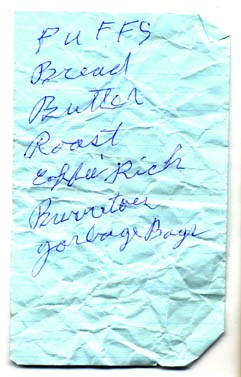 PUFFS
Bread
Butter
Roast
Rich
Burritoes
garbage Bags